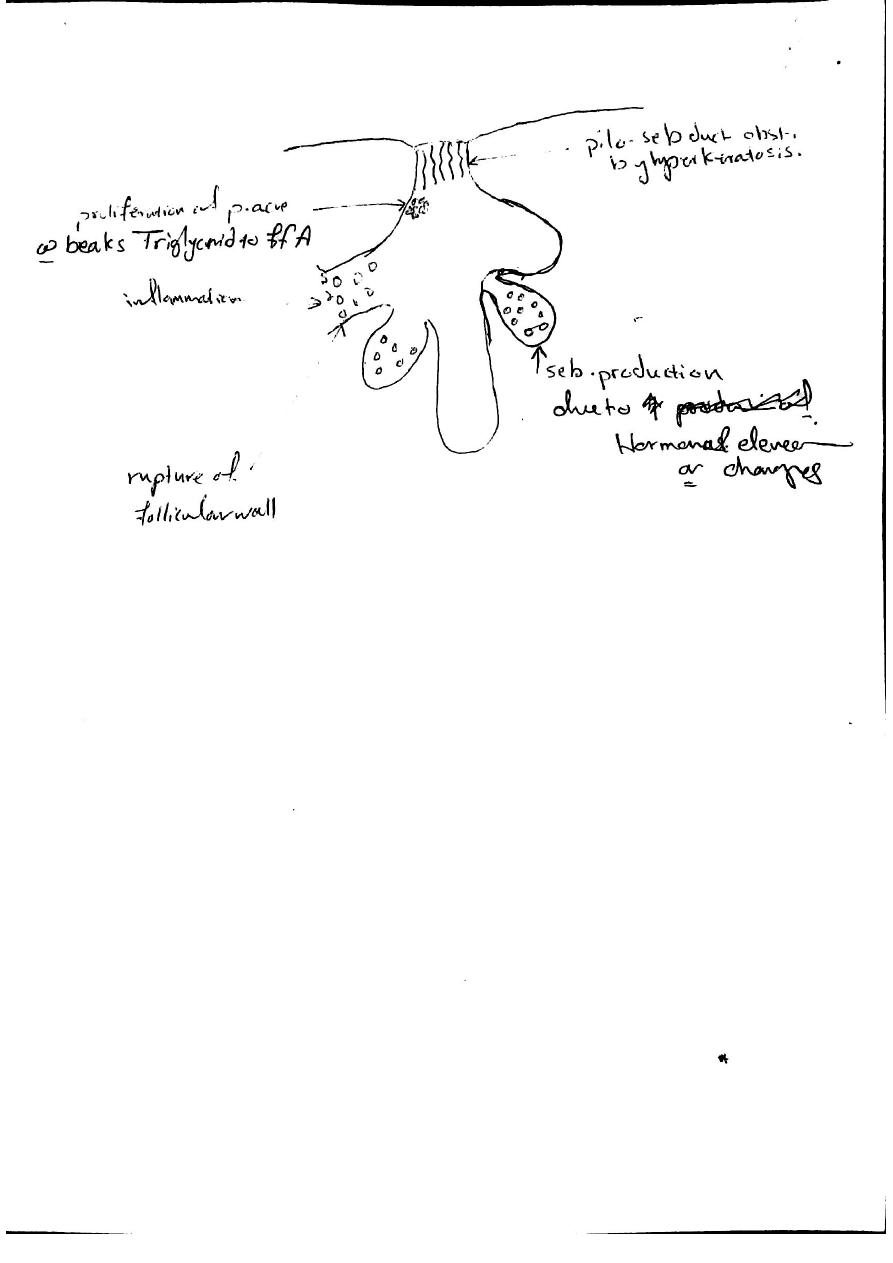 pilo-seb duct obst.
by hyperkeratosis.
proliferation of p.acne
beaks Triglycrid to ffA
inflammation
seb.production
due to
Hormonal
or changes
rupture of
follicular wall